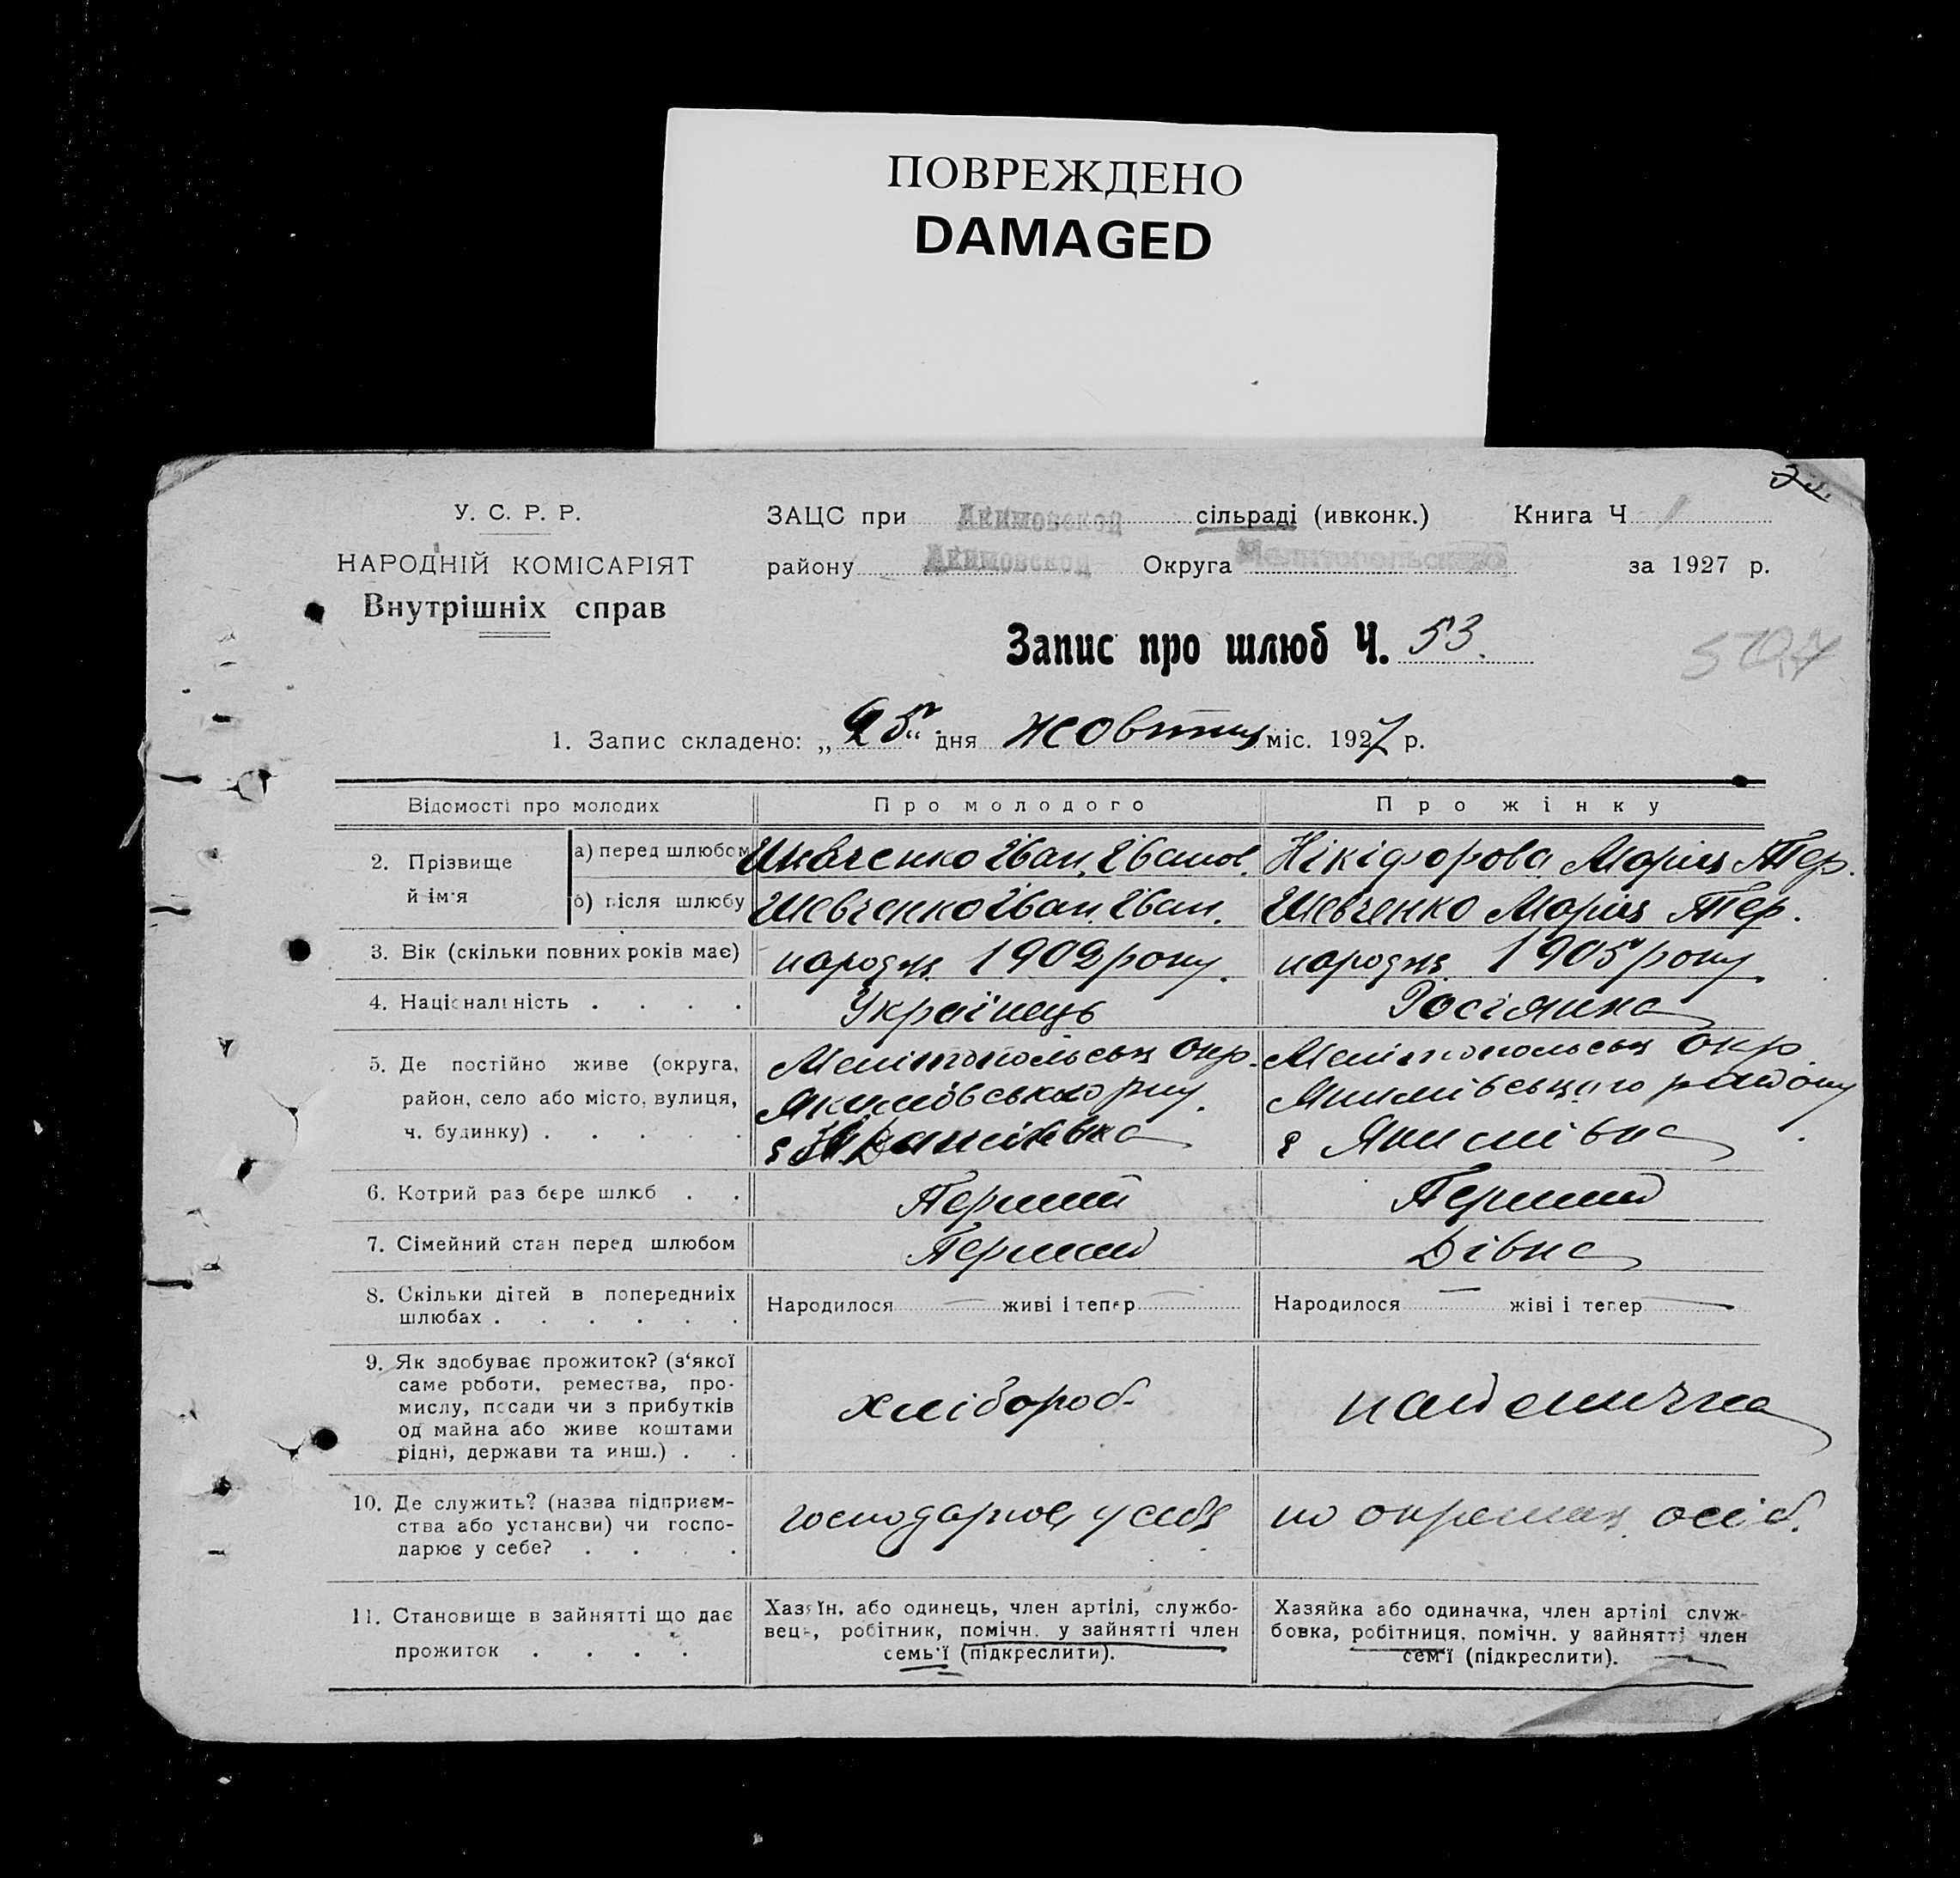 ПОВРЕЖДЕНО
DAMAGED
У. С. Р. Р.
НАРОДНІЙ КОМІСАРІЯТ
Внутрішніх справ
ЗАЦС при Акимовской сільраді (ивконк.) Книга Ч 1
району Акимовской Округа Мелитопольского за 1927 р.
Запис про шлюб Ч. 53.
1. Запис складено: „25“ дня жовтня міс. 1927 р.
Відомості про молодих
Про молодого
Про жінку
2. Прізвище й ім'я
а) перед шлюбом
Шевченко Іван Іванов.
Нікіфорова Марія Тер.
б) після шлюбу
Шевченко Іван Іван.
Шевченко Марія Тер.
3. Вік (скільки повних років має)
народж 1902 року.
народж 1905 року
4. Національність . . . .
Українець
Росіянка
5. Де постійно живе (округа,
район, село або місто, вулиця,
ч. будинку) . . . . .
Мелітопольськ Окр.
Якимівського р-ну.
Мелітопольськ Окр.
Якимівського району
с Якимівка
6. Котрий раз бере шлюб . .
Перший
Перший
7. Сімейний стан перед шлюбом
Перший
Дівка
8. Скільки дітей в попередниіх
шлюбах . . . . . .
Народилося — живі і тепер —
Народилося — жіві і тепер —
9. Як здобуває прожиток? (з'якої
саме роботи, ремества, про-
мислу, посади чи з прибутків
од майна або живе коштами
рідні, держави та инш.) . .
хлібороб
найомичка
10. Де служить? (назва підприєм-
ства або установи) чи госпо-
дарює у себе? . . . .
господарює у себе
по окремих осіб.
11. Становище в зайнятті що дає
прожиток . . . .
Хазяїн, або одинець, член артілі, службо-
вець, робітник, помічн. у зайнятті член
семь'ї (підкреслити).
Хазяйка або одиначка, член артілі служ-
бовка, робітниця, помічн. у зайнятті член
сем'ї (підкреслити).